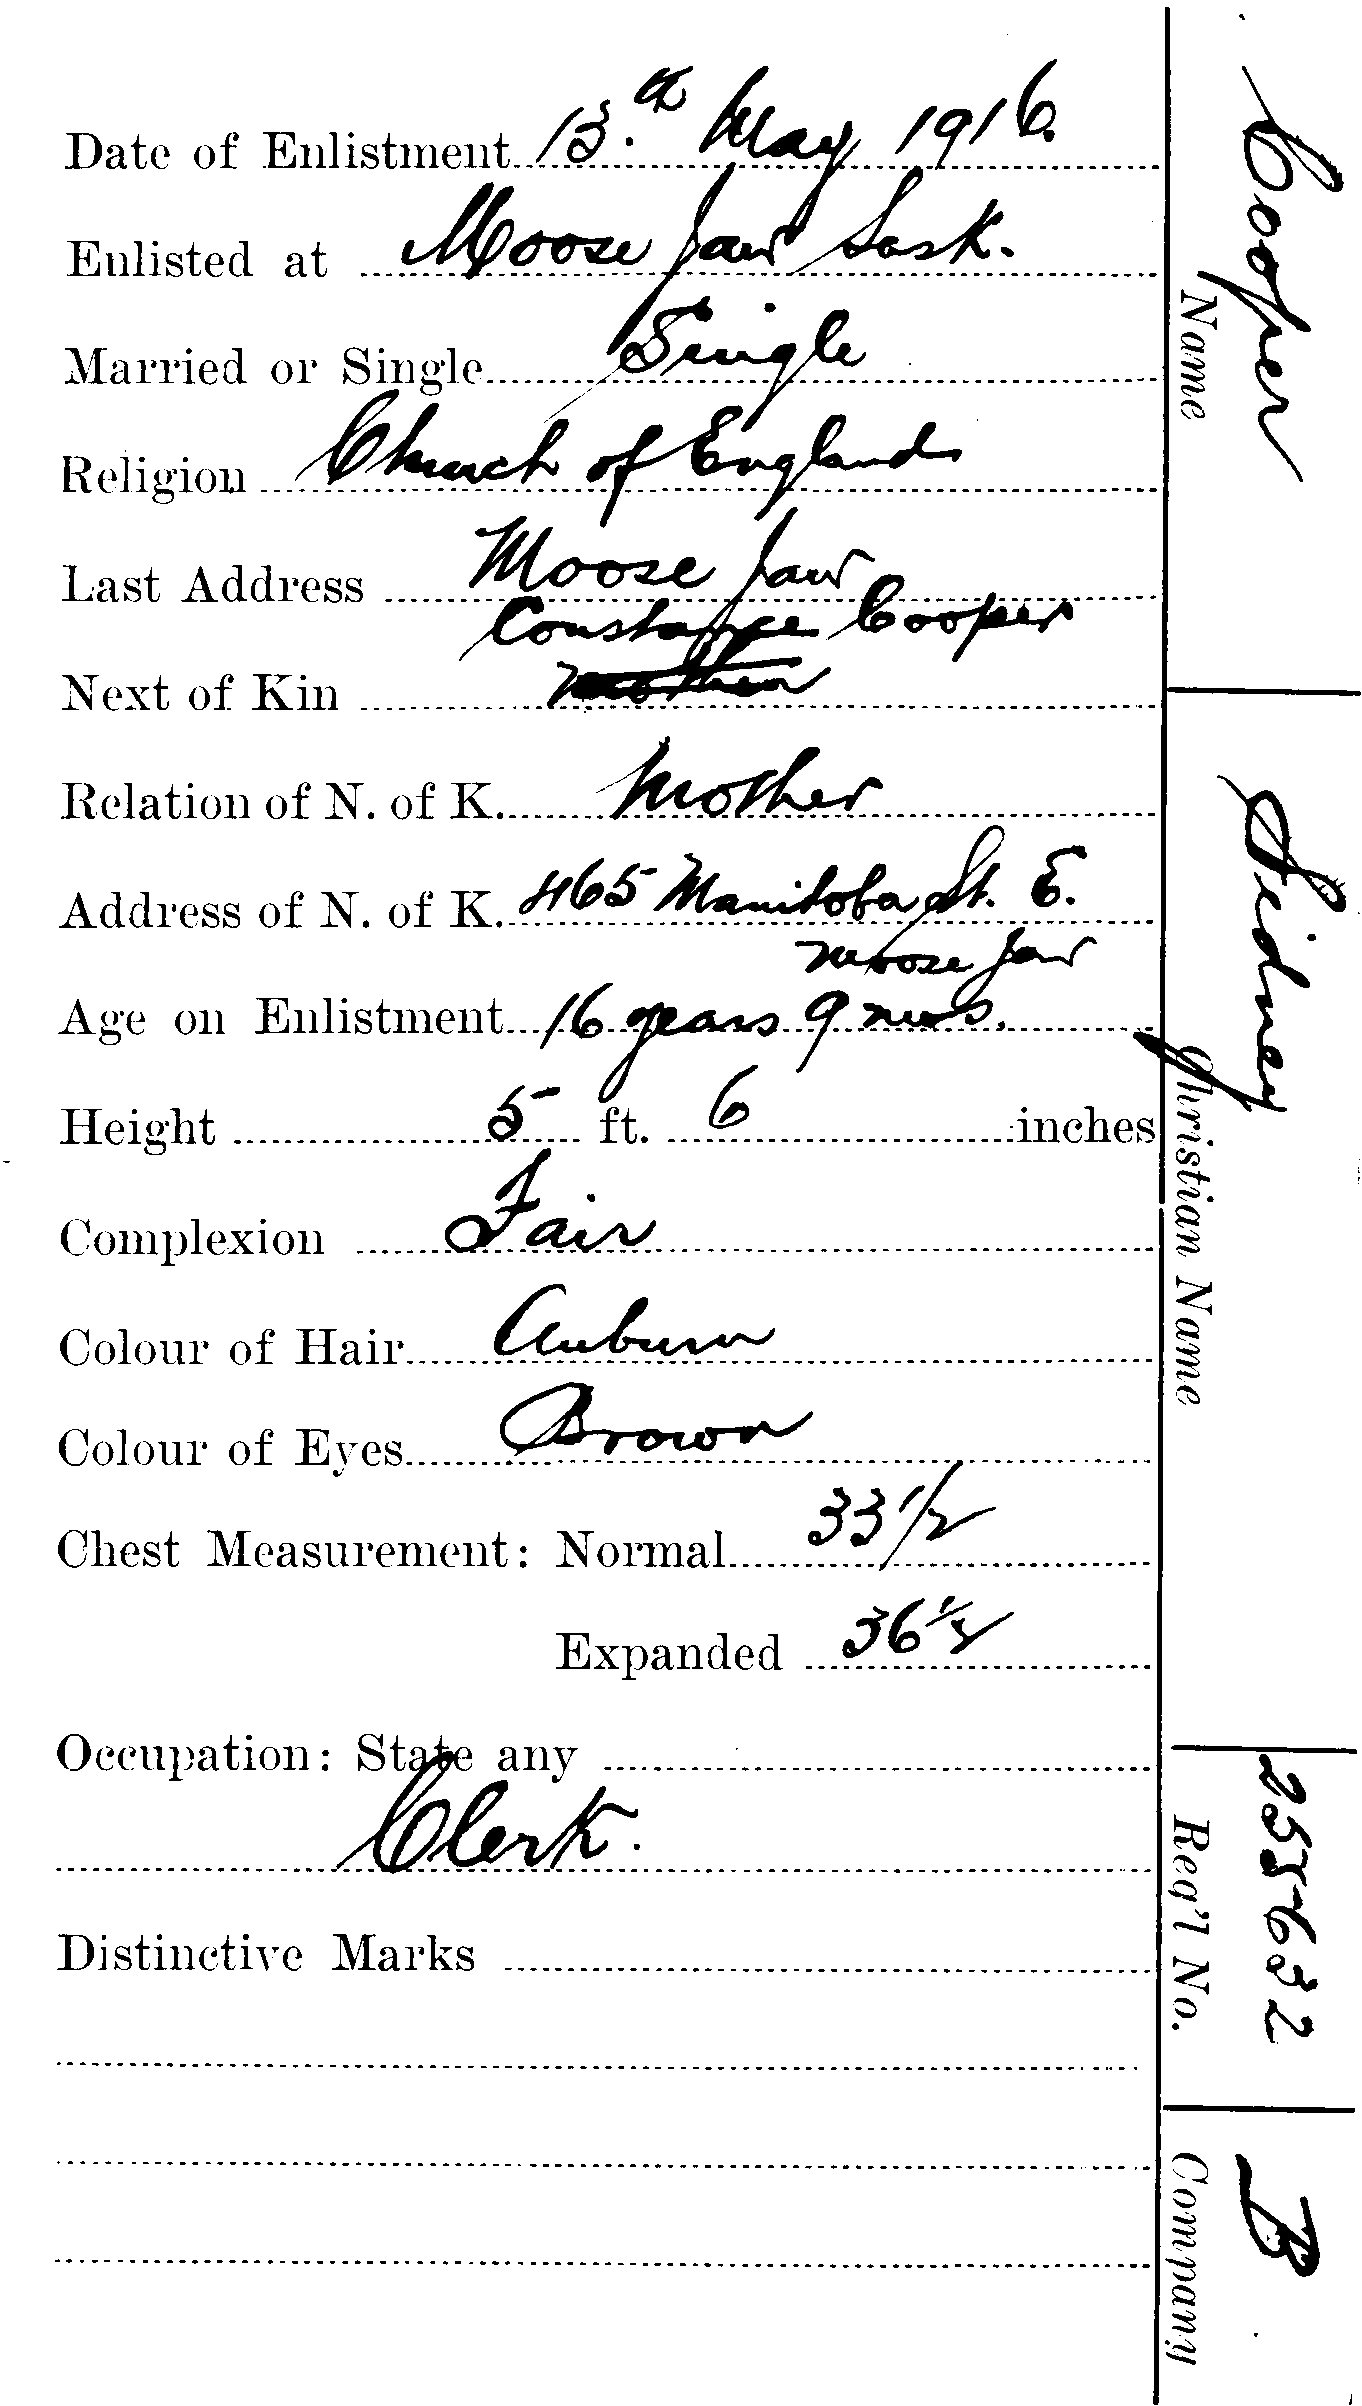 Date of Enlistment 13.th May 1916.
Enlisted at Moose Jaw Sask.
Married or Single Single
Religion Church of England
Last Address Moose Jaw
Constance Cooper
Next of Kin mother
Relation of N. of K. Mother
Address of N. of K. 465 Manitoba St. E.
Moose Jaw
Age on Enlistment 16 years 9 mos.
Height 5 ft. 6 inches
Complexion Fair
Colour of Hair Auburn
Colour of Eyes Brown
Chest Measurement: Normal 33 1/2
Expanded 36 1/2
Occupation: State any
Clerk.
Distinctive Marks
Cooper
Name
Sidney
Christian Name
255632
Req'l No.
B
Company